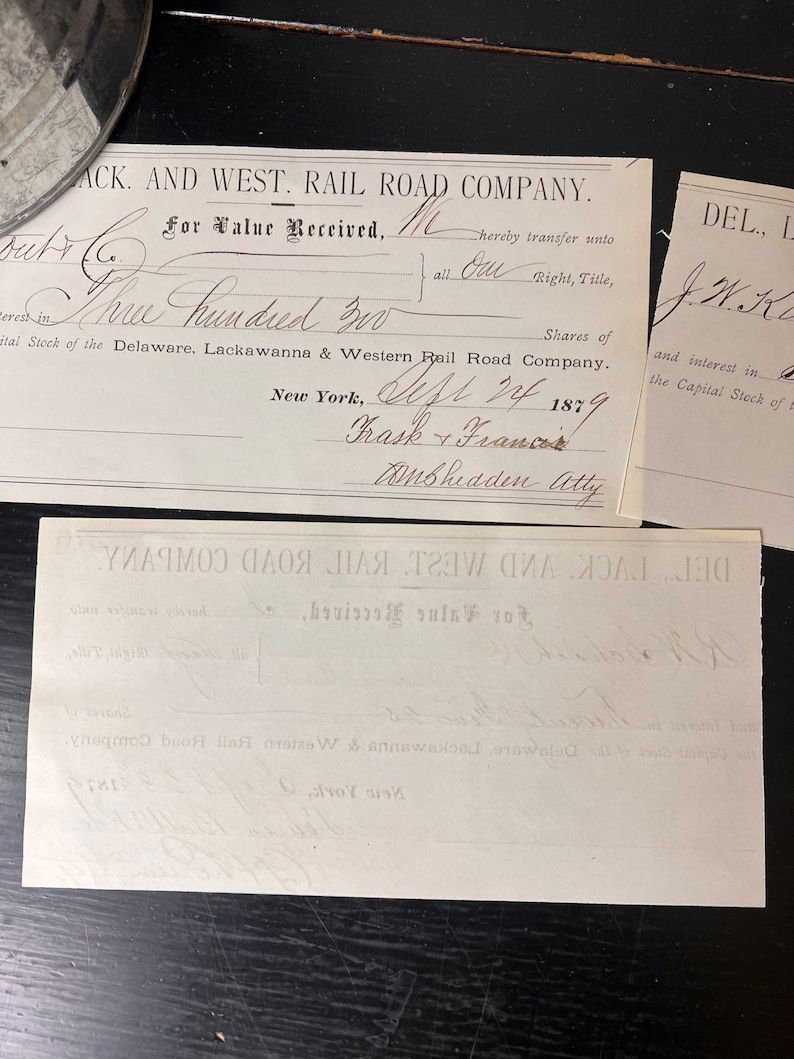 LACK. AND WEST. RAIL ROAD COMPANY.
For Value Received, We hereby transfer unto
& Co.
all our Right, Title,
terest in Three hundred 300 Shares of
ital Stock of the Delaware, Lackawanna & Western Rail Road Company.
New York, Sept 24 1879
Trask & Francis
Shedden Atty
DEL., L
J. W.
and interest in
the Capital Stock of t
DEL., LACK. AND WEST. RAIL ROAD COMPANY.
For Value Received, I hereby transfer unto
all my Right, Title,
and interest in Twenty Five Shares of
the Capital Stock of the Delaware, Lackawanna & Western Rail Road Company.
New York, Sept 1879